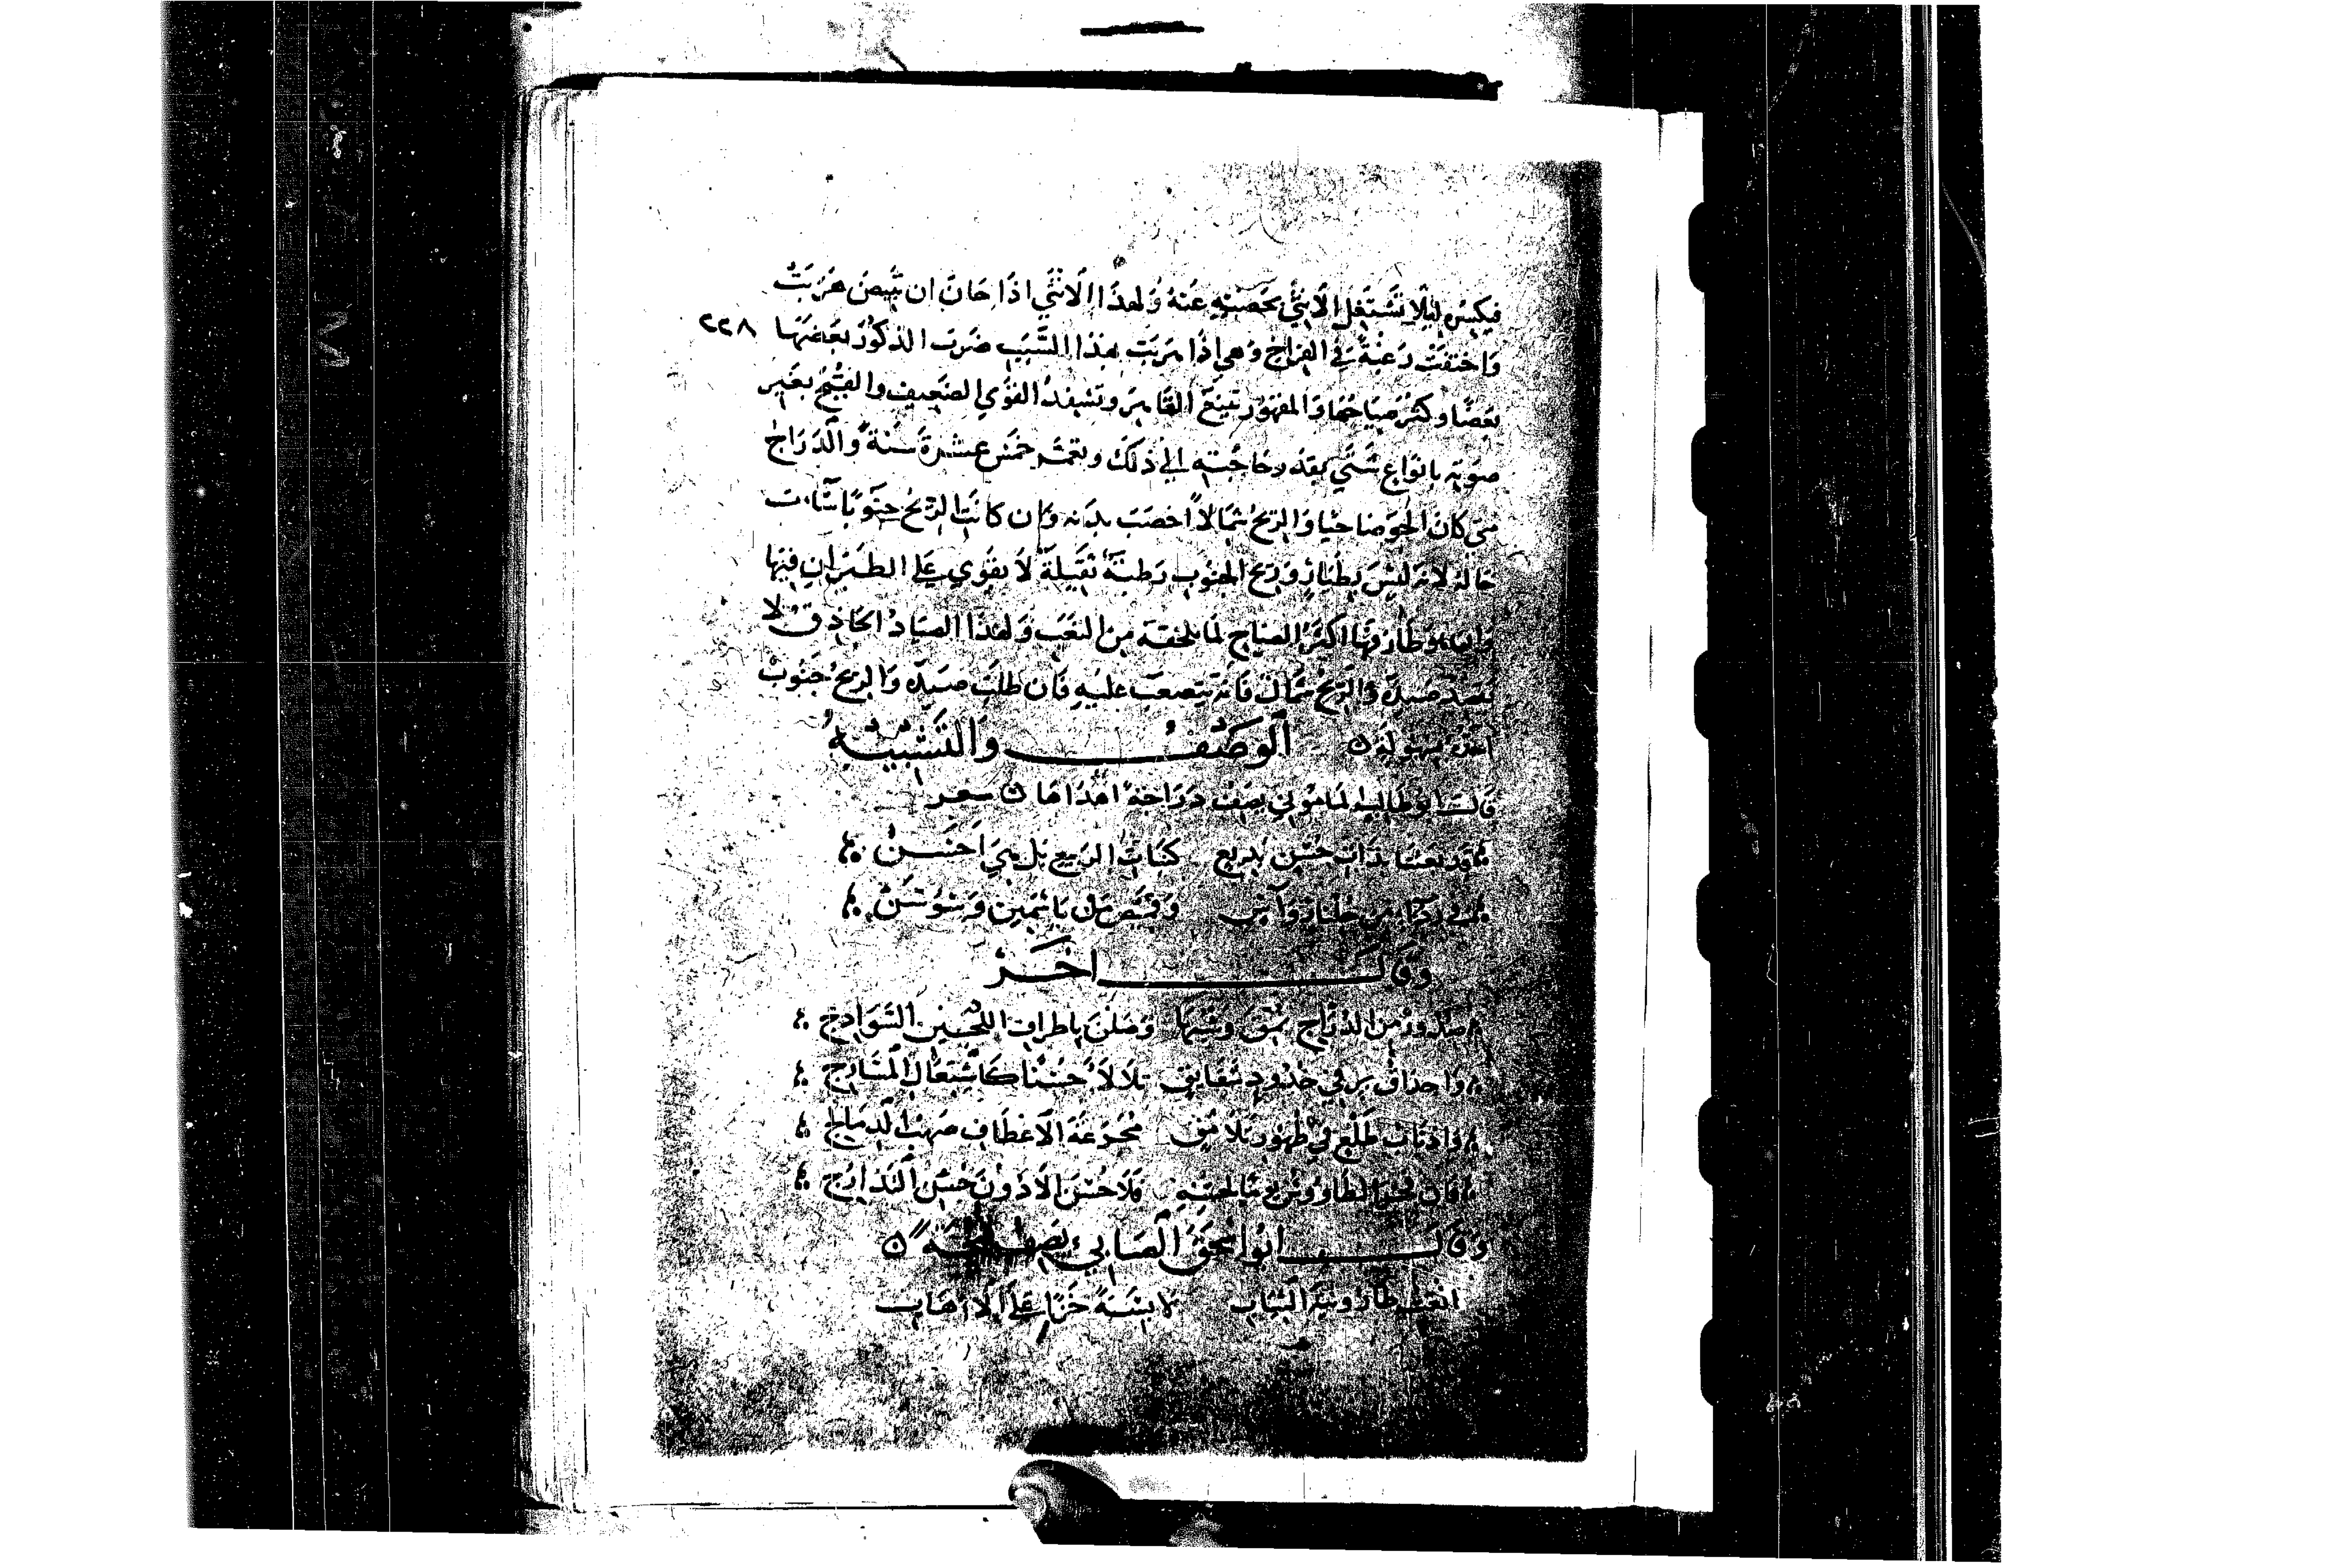 فيكسره ليلا تشتغل الانثى بحضنه عنه ولهذا الانثى اذا حان ان تبيض هربت
واختفت رغبة في الفراخ وهي اذا هربت بهذا السبب ضربت الذكور بعضها
٢٢٨
بعضا وكثر صياحها والمقهور يتبع القاهر وتسفد القوي الضعيف والقبج يغير
صوته بانواع شتى بقدر حاجته الى ذلك ويعمر خمس عشرة سنة والدراج
متى كان الجو صاحيا والريح شمالا اخصب بدنه وان كانت الريح جنوبا ساءت
حاله لانه ليس بطيار وريح الجنوب رطبة ثقيلة لا يقوى على الطيران فيها
وان هو طار فيها اكثر الصياح لما يلحقه من التعب ولهذا الصياد الحاذق لا
يقصد صيده والريح شمال فانه يتصعب عليه فان طلب صيده والريح جنوب
اخذه بسهولة ه الوصف والتشبيه
قال ابو طالب الماموني يصف دراجة اهداها ه شعر
قد بعثنا بذات حسن بديع كنبات الربيع بل هي احسن
في رداء من جلنار وآس وقميص من ياسمين وسوسن
وقال اخر
صدور من الدراج نمق وشيها وصلن باطراف اللجين السواذج
واحداق تبر في خدود شقايق تلالا حسنا كاشتعال المسارج
واذناب طلع في ظهور ملاعق مجزعة الاعطاف صهب الدمالج
فان فخر الطاووس يوما بحسنه فلا حسن الا دون حسن التدارج
وقال ابو اسحق الصابي يصف قبجة ه
انعت طاروسة الثياب لابسة خزا على الاهاب